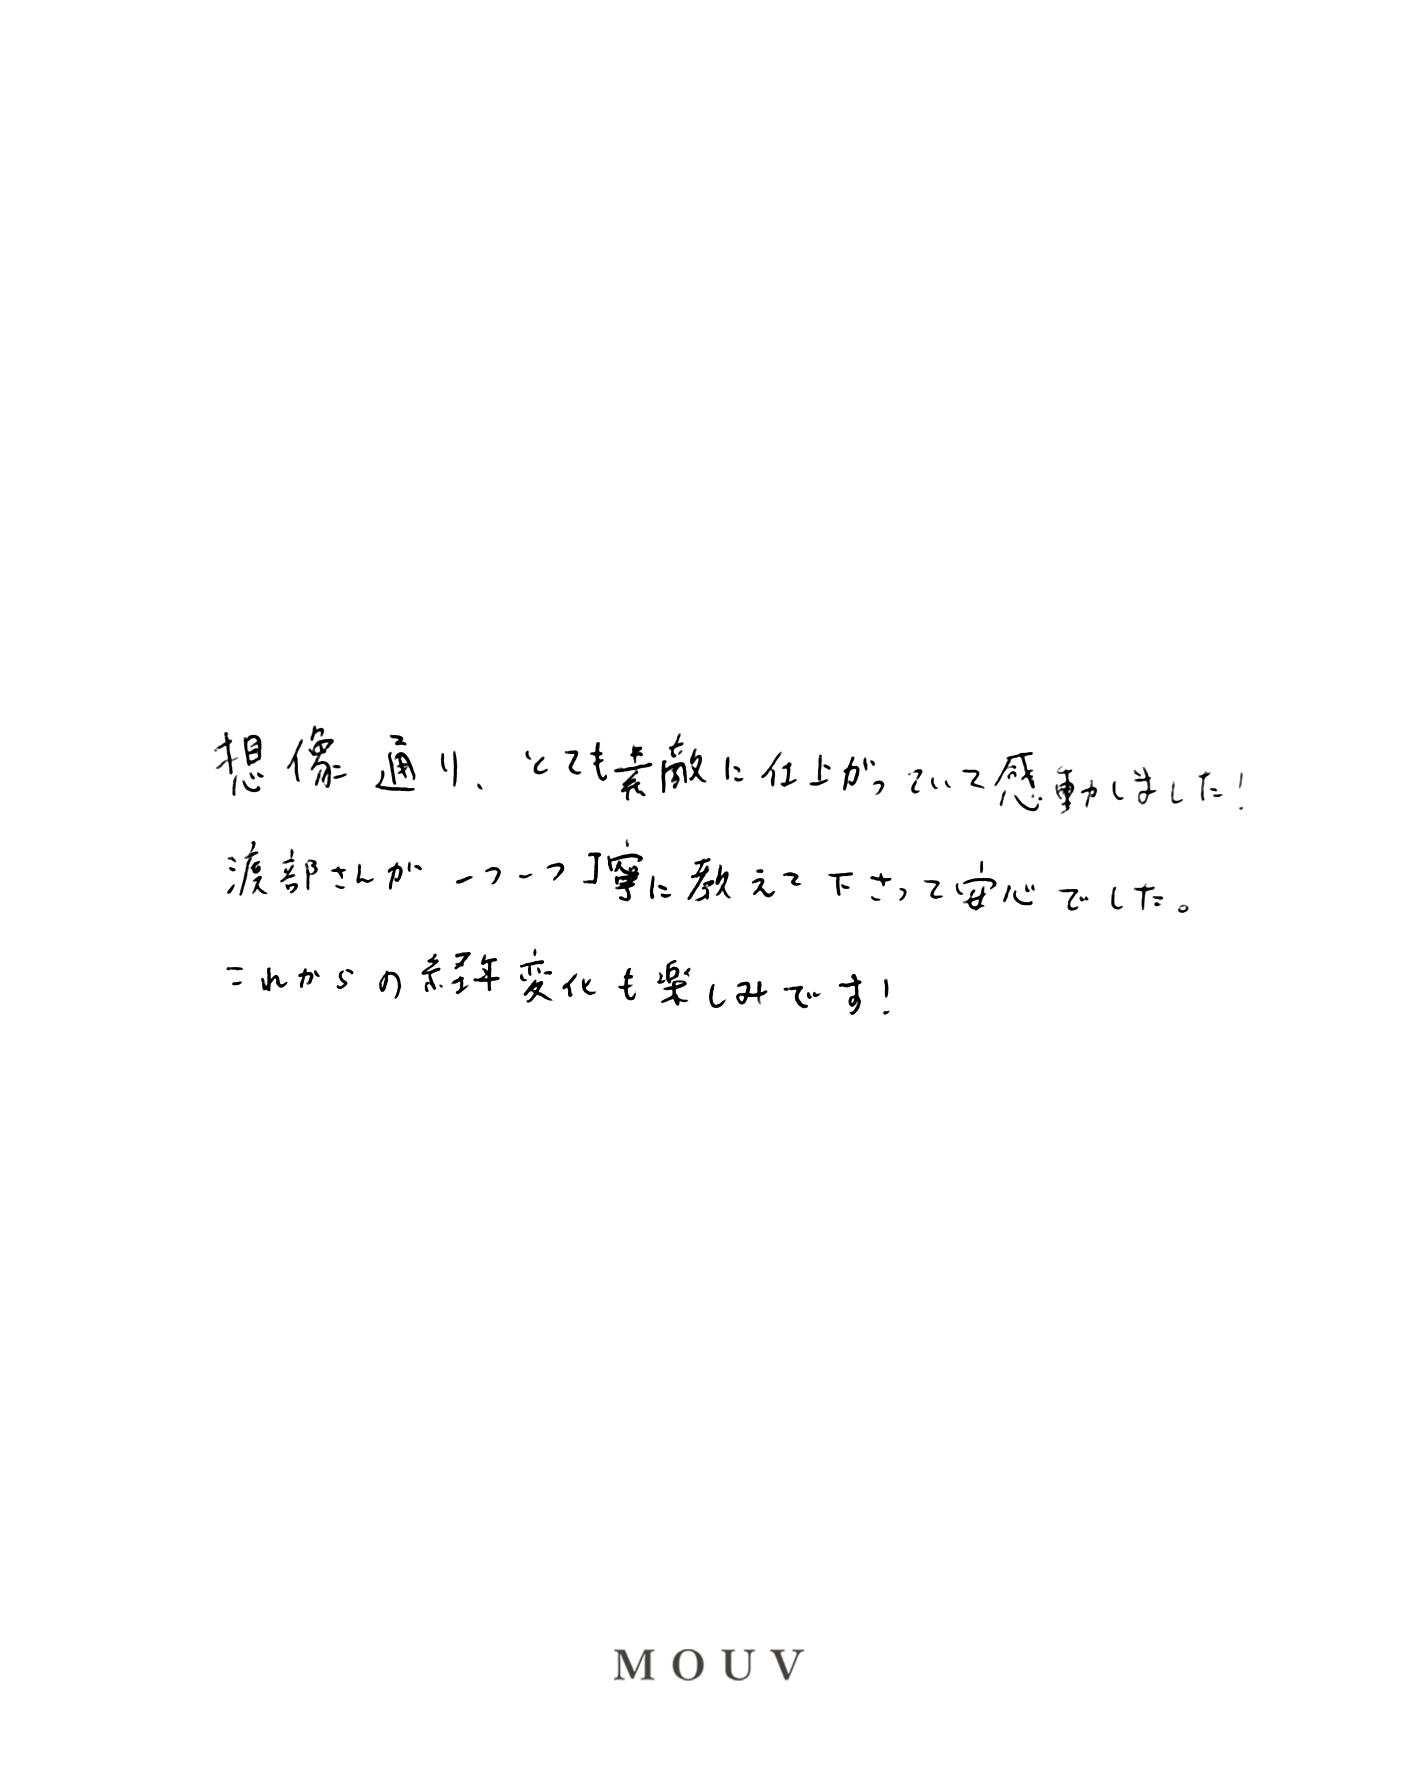 想像通り、とても素敵に仕上がっていて感動しました!
渡部さんが一つ一つ丁寧に教えて下さって安心でした。
これからの経年変化も楽しみです!
MOUV